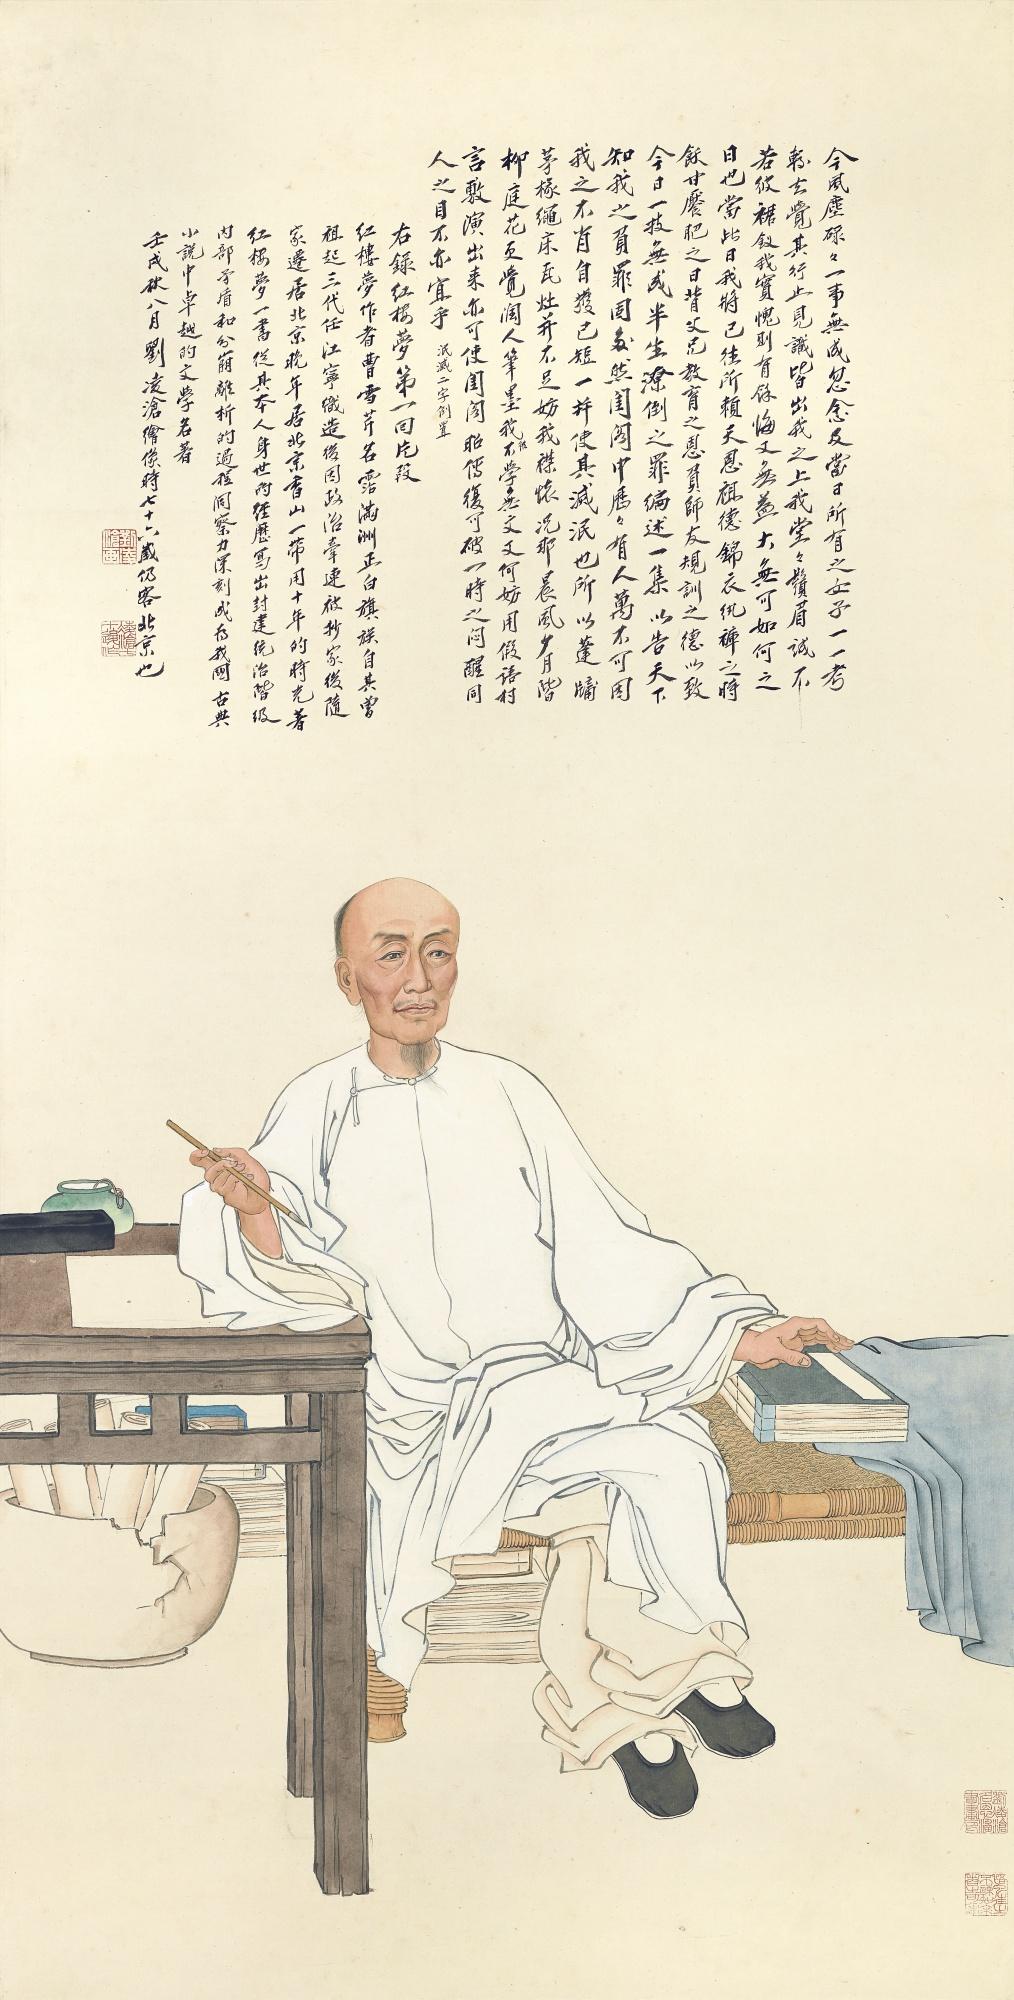 今風塵碌々一事無成忽念及當日所有之女子一一考
較去覺其行止見識皆出我之上我堂々鬚眉誠不
若彼裙釵我實愧則有餘悔又無益大無可如何之
日也當此日我將已往所賴天恩祖德錦衣紈褲之時
飫甘饜肥之日背父兄教育之恩負師友規訓之德以致
今日一技無成半生潦倒之罪編述一集以告天下
知我之負罪固多然閨閣中歷々有人萬不可因
我之不肖自護已短一并使其滅泯也所以蓬牖
茅椽繩床瓦灶并不足妨我襟懷况那晨風夕月階
柳庭花更覺潤人筆墨我雖不學無文又何妨用假語村
言敷演出来亦可使閨閣昭傳復可破一時之悶醒同
人之目不亦宜乎 泯滅二字倒置
右錄紅樓夢第一回片段
紅樓夢作者曹雪芹名霑滿洲正白旗族自其曾
祖起三代任江寧織造後因政治牽連被抄家後隨
家遷居北京晚年居北京香山一带用十年的時光著
紅樓夢一書從其本人身世所經歷寫出封建統治階級
内部矛盾和分崩離析的過程洞察力深刻成為我國古典
小説中卓越的文學名著
壬戌秋八月劉凌滄繪像時七十六歲仍客北京也